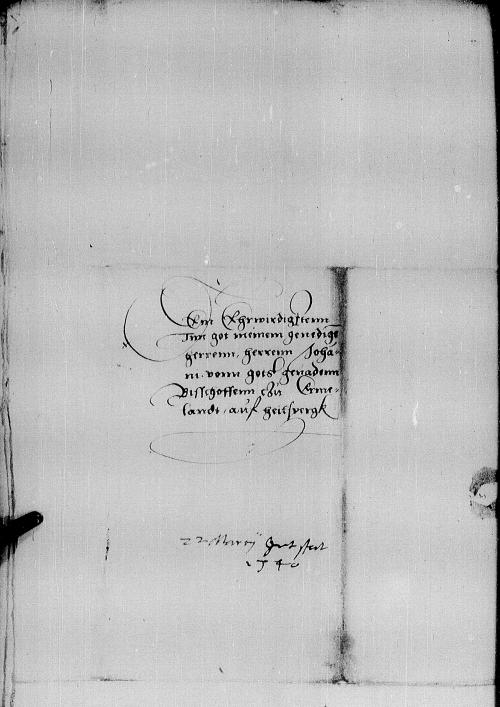 Dem Ehrwirdigstenn
Inn got meinem genedigē
herrenn, herrenn Joha-
ni vonn gots genadenn
Bisschoffenn Zu Erme-
landt, auf heilspergk
22 Marcÿ
1540